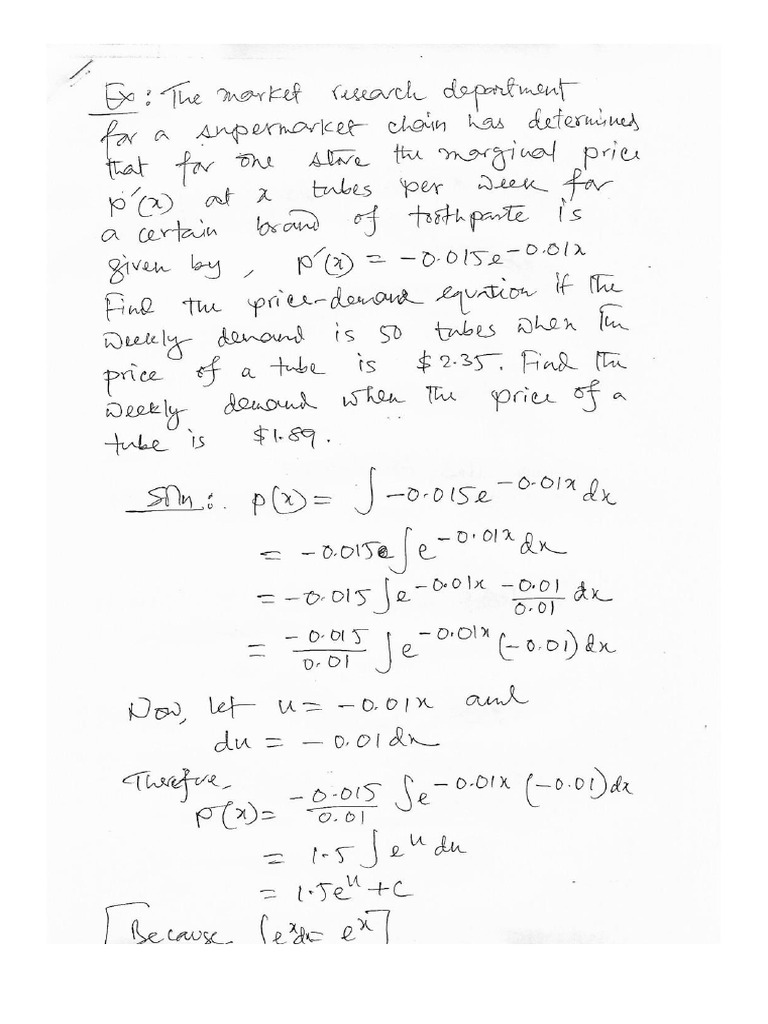 Ex: The market research department
for a supermarket chain has determined
that for one store the marginal price
p′(x) at x tubes per week for
a certain brand of toothpaste is
given by, p′(x) = -0.015e^{-0.01x}
Find the price-demand equation if the
weekly demand is 50 tubes when the
price of a tube is $2.35. Find the
weekly demand when the price of a
tube is $1.89.
Soln: p(x) = ∫ -0.015e^{-0.01x} dx
= -0.015 ∫ e^{-0.01x} dx
= -0.015 ∫ e^{-0.01x} \frac{-0.01}{0.01} dx
= \frac{-0.015}{0.01} ∫ e^{-0.01x} (-0.01) dx
Now, let u = -0.01x and
du = -0.01dx
Therefore,
p(x) = \frac{-0.015}{0.01} ∫ e^{-0.01x} (-0.01)dx
= 1.5 ∫ e^u du
= 1.5e^u + C
[Because ∫ e^x dx = e^x]